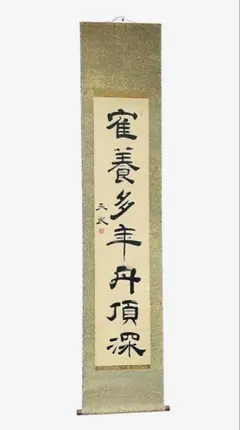 寉養多年丹頂深
天民